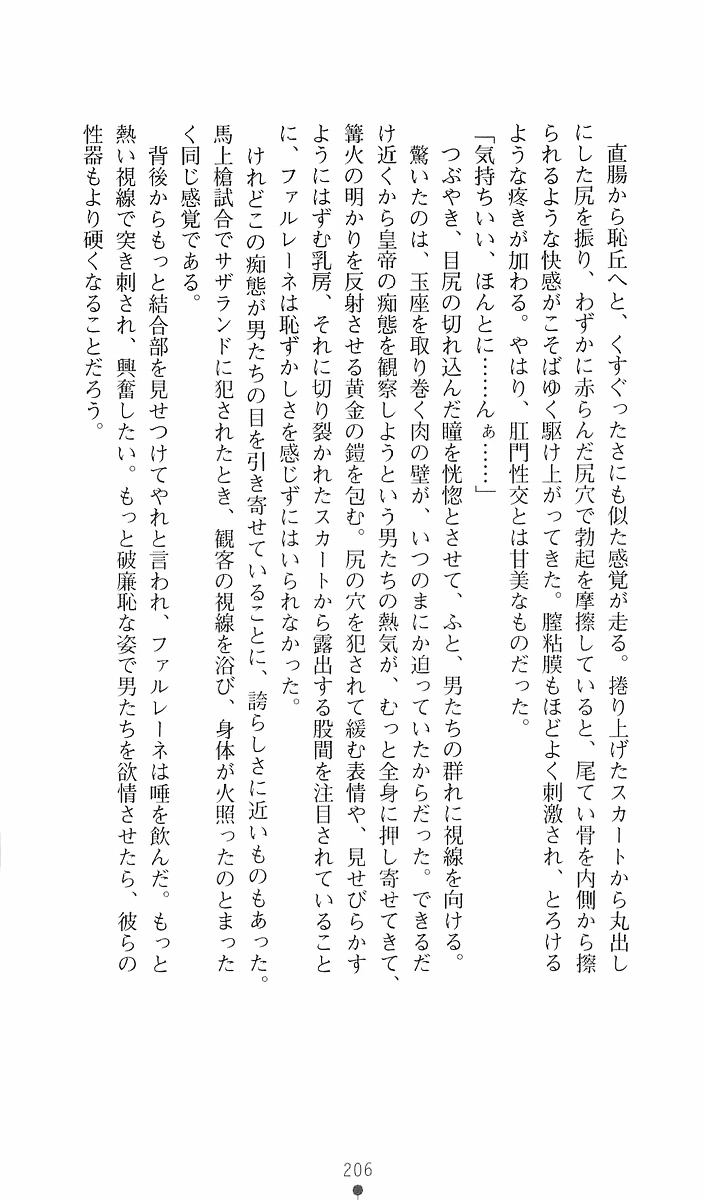 直腸から恥丘へと、くすぐったさにも似た感覚が走る。捲り上げたスカートから丸出し
にした尻を振り、わずかに赤らんだ尻穴で勃起を摩擦していると、尾てい骨を内側から擦
られるような快感がこそばゆく駆け上がってきた。膣粘膜もほどよく刺激され、とろける
ような疼きが加わる。やはり、肛門性交とは甘美なものだった。
「気持ちいい、ほんとに……んぁ……」
つぶやき、目尻の切れ込んだ瞳を恍惚とさせて、ふと、男たちの群れに視線を向ける。
驚いたのは、玉座を取り巻く肉の壁が、いつのまにか迫っていたからだった。できるだ
け近くから皇帝の痴態を観察しようという男たちの熱気が、むっと全身に押し寄せてきて、
篝火の明かりを反射させる黄金の鎧を包む。尻の穴を犯されて緩む表情や、見せびらかす
ようにはずむ乳房、それに切り裂かれたスカートから露出する股間を注目されていること
に、ファルレーネは恥ずかしさを感じずにはいられなかった。
けれどこの痴態が男たちの目を引き寄せていることに、誇らしさに近いものもあった。
馬上槍試合でサザランドに犯されたとき、観客の視線を浴び、身体が火照ったのとまった
く同じ感覚である。
背後からもっと結合部を見せつけてやれと言われ、ファルレーネは唾を飲んだ。もっと
熱い視線で突き刺され、興奮したい。もっと破廉恥な姿で男たちを欲情させたら、彼らの
性器もより硬くなることだろう。
206